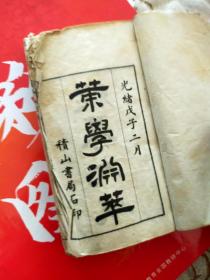 光緒戊子二月
策學淵萃
積山書局石印